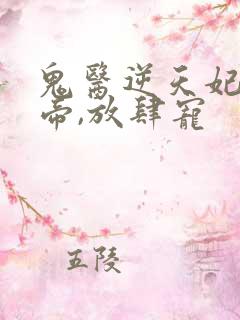 鬼醫逆天妃
帝,放肆寵
五陵